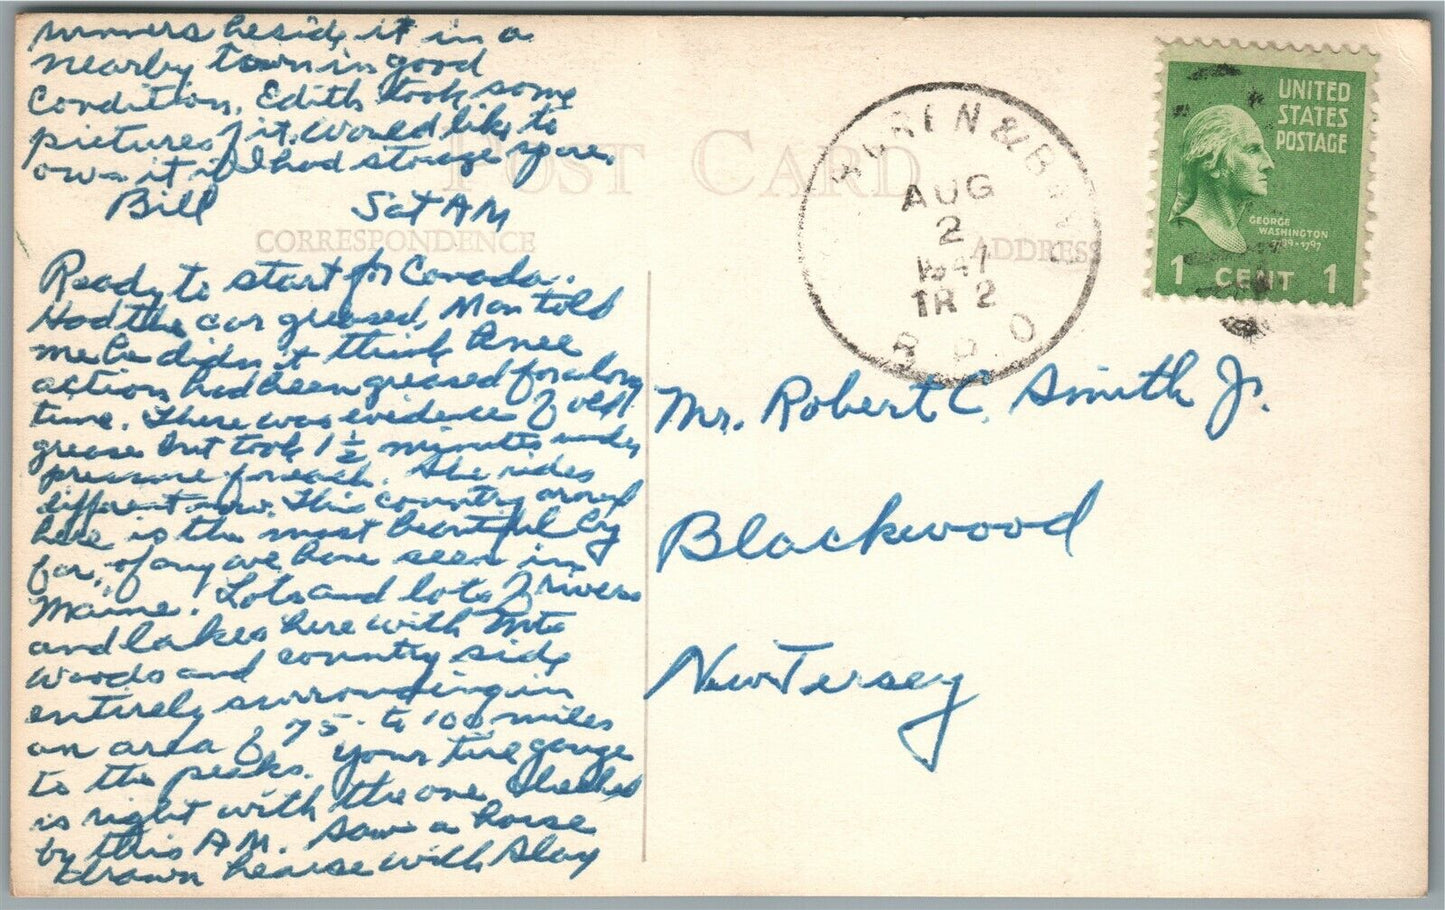 runners beside it in a
nearby town in good
condition. Edith took some
pictures of it. Would like to
own it if I had storage space.
Bill Sat AM
POST CARD
CORRESPONDENCE
ADDRESS
Ready to start for Canada.
Had the car greased. Man told
me he didn't think knee
action had been greased for a long
time. There was evidence of old
grease but took 1 1/2 minutes under
pressure for each. She rides
different now. This country around
here is the most beautiful by
far, of any we have seen in
Maine. Lots and lots of rivers
and lakes here with Mts
woods and country side
entirely surrounding in
an area of 75 to 100 miles
to the peaks. Your tire gauge
is right with the one checked
by this AM. Saw a horse
drawn hearse with slay
& B
AUG
2
1947
TR 2
R.P.O
UNITED
STATES
POSTAGE
GEORGE
WASHINGTON
1 CENT 1
Mr. Robert C. Smith Jr.
Blackwood
New Jersey